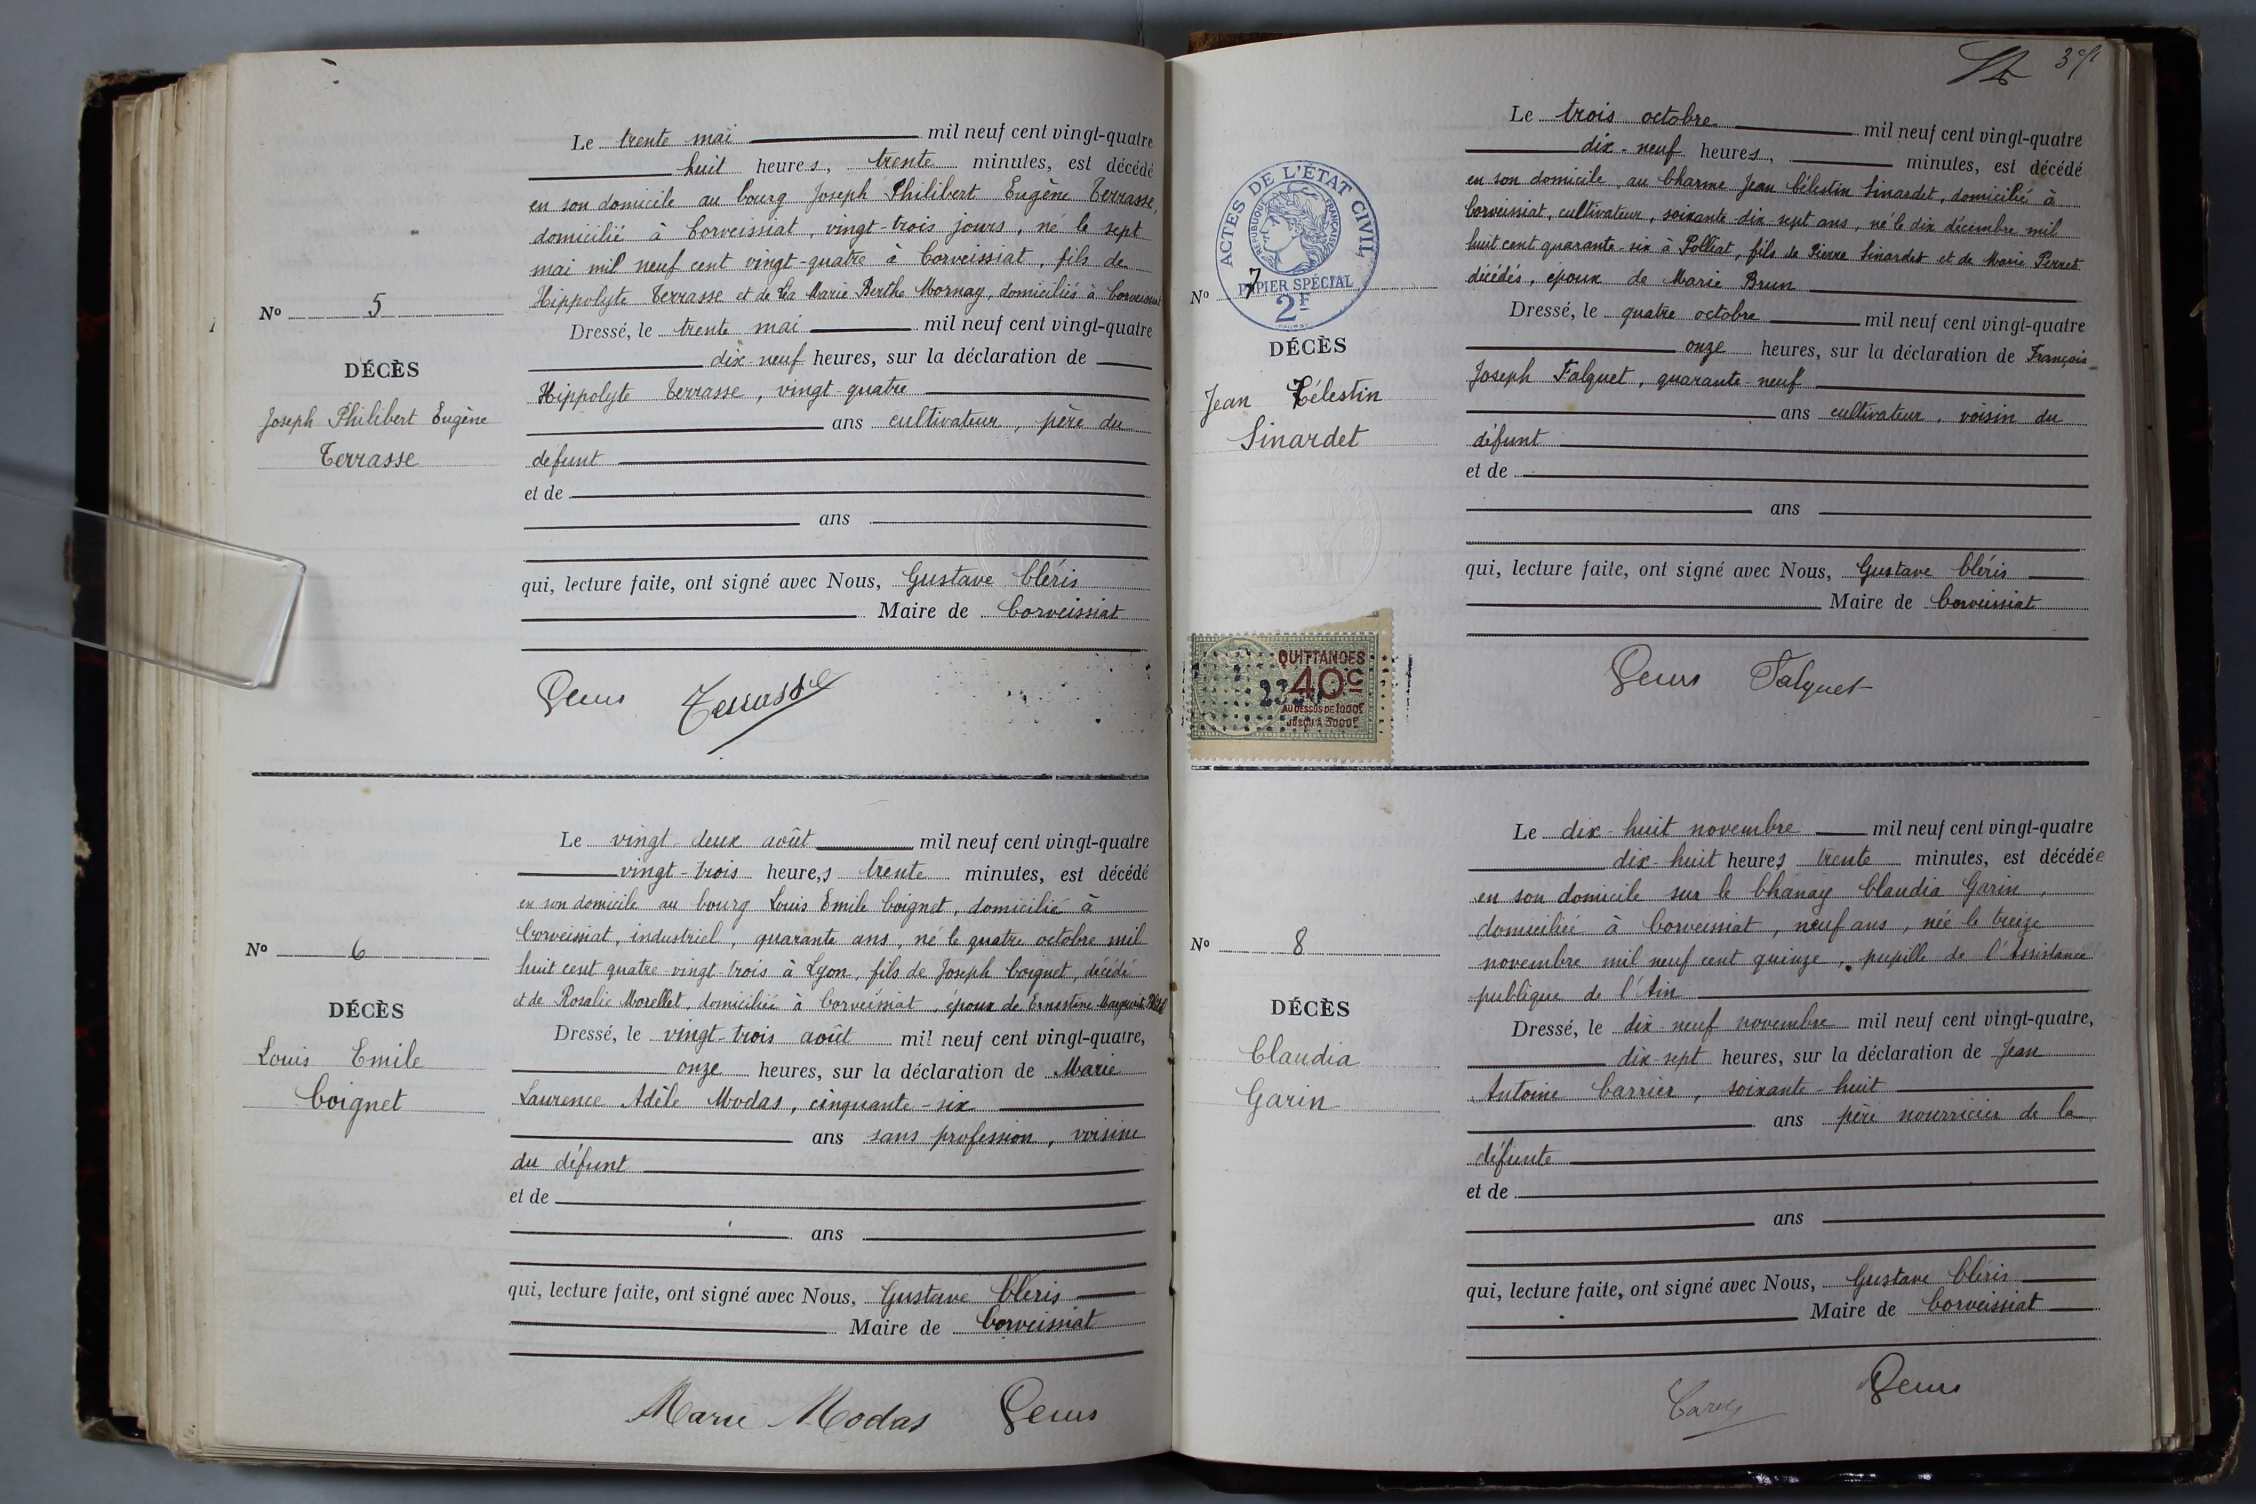 Le trente mai mil neuf cent vingt-quatre
huit heures, trente minutes, est décédé
en son domicile au bourg Joseph Philibert Eugène Terrasse,
domicilié à Corveissiat, vingt-trois jours, né le sept
mai mil neuf cent vingt-quatre à Corveissiat, fils de
Hippolyte Terrasse et de Léa Marie Berthe Mornay, domiciliés à Corveissiat
Nº 5
Dressé, le trente mai mil neuf cent vingt-quatre
dix-neuf heures, sur la déclaration de
DÉCÈS
Hippolyte Terrasse, vingt-quatre
Joseph Philibert Eugène
Terrasse
ans cultivateur, père du
défunt
et de
ans
qui, lecture faite, ont signé avec Nous, Gustave Cléris
Maire de Corveissiat
Terrasse
Le vingt-deux août mil neuf cent vingt-quatre
vingt-trois heures, trente minutes, est décédé
en son domicile au bourg Louis Emile Coignet, domicilié à
Corveissiat, industriel, quarante ans, né le quatre octobre mil
Nº 6
huit cent quatre-vingt-trois à Lyon, fils de Joseph Coignet, décédé
et de Rosalie Morellet, domiciliée à Corveissiat, époux de Ernestine Marguerite
DÉCÈS
Dressé, le vingt-trois août mil neuf cent vingt-quatre,
Louis Emile
Coignet
onze heures, sur la déclaration de Marie
Laurence Adèle Modas, cinquante-six
ans sans profession, voisine
du défunt
et de
ans
qui, lecture faite, ont signé avec Nous, Gustave Cléris
Maire de Corveissiat
Marie Modas
Le trois octobre mil neuf cent vingt-quatre
dix-neuf heures, minutes, est décédé
en son domicile, au Charme Jean Célestin Sinardet, domicilié à
Corveissiat, cultivateur, soixante-dix-sept ans, né le dix décembre mil
huit cent quarante-six à Polliat, fils de Pierre Sinardet et de Marie Perret
décédés, époux de Marie Brun
ACTES DE L'ÉTAT CIVIL
RÉPUBLIQUE FRANÇAISE
PAPIER SPÉCIAL
2F
Nº 7
DÉCÈS
Jean Célestin
Sinardet
Dressé, le quatre octobre mil neuf cent vingt-quatre
onze heures, sur la déclaration de François
Joseph Falquet, quarante-neuf
ans cultivateur, voisin du
défunt
et de
ans
qui, lecture faite, ont signé avec Nous, Gustave Cléris
Maire de Corveissiat
QUITTANCES
40c
AU DESSUS DE 1000F
JUSQU'À 3000F
Falquet
Le dix-huit novembre mil neuf cent vingt-quatre
dix-huit heures trente minutes, est décédée
en son domicile sur le Chanay Claudia Garin,
domiciliée à Corveissiat, neuf ans, née le treize
Nº 8
novembre mil neuf cent quinze, pupille de l'Assistance
publique de l'Ain
DÉCÈS
Claudia
Garin
Dressé, le dix-neuf novembre mil neuf cent vingt-quatre,
dix-sept heures, sur la déclaration de Jean
Antoine Carrier, soixante-huit
ans père nourricier de la
défunte
et de
ans
qui, lecture faite, ont signé avec Nous, Gustave Cléris
Maire de Corveissiat